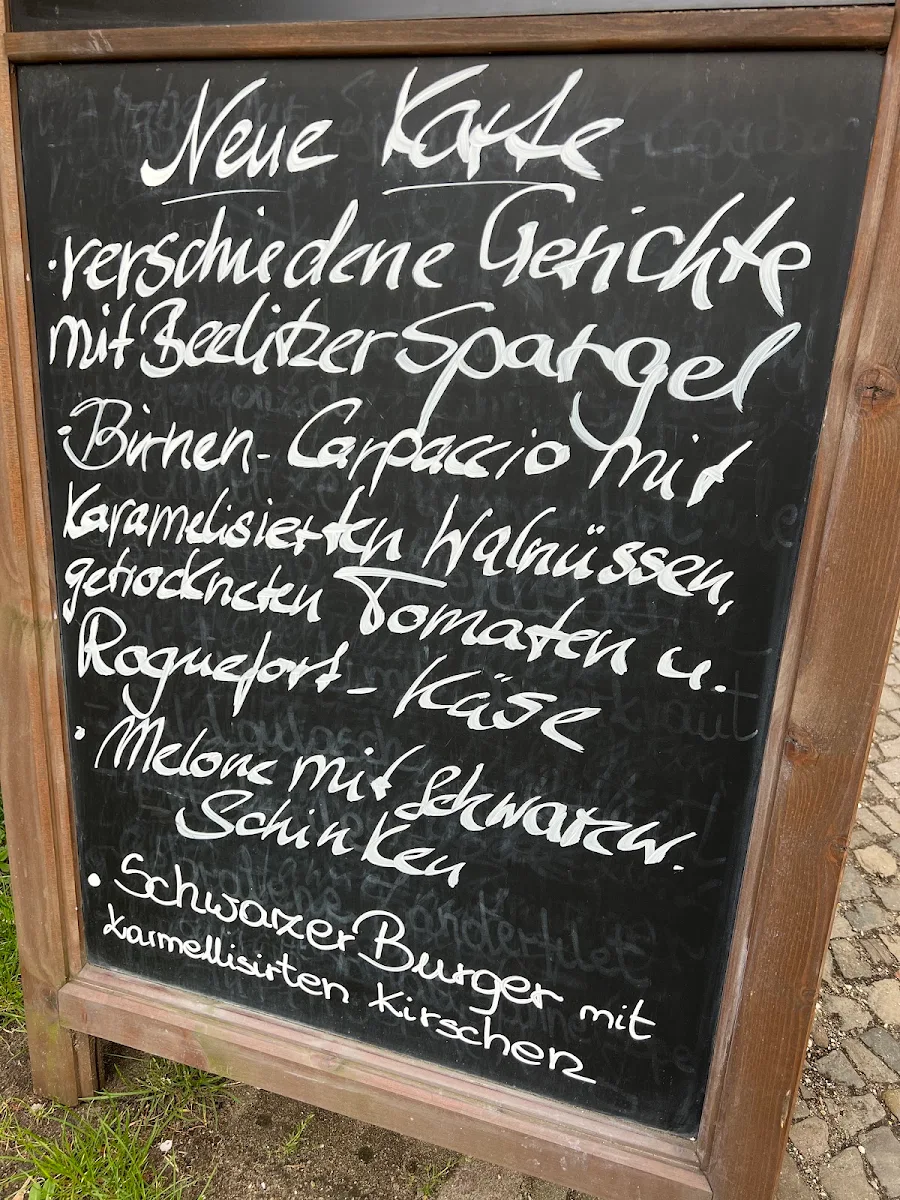 Neue Karte
· verschiedene Gerichte
mit Beelitzer Spargel
· Birnen-Carpaccio mit
Karamelisierten Walnüssen,
getrockneten Tomaten u.
Roquefort-Käse
· Melone mit Schwarzw.
Schinken
· Schwarzer Burger mit
karmellisirten Kirschen